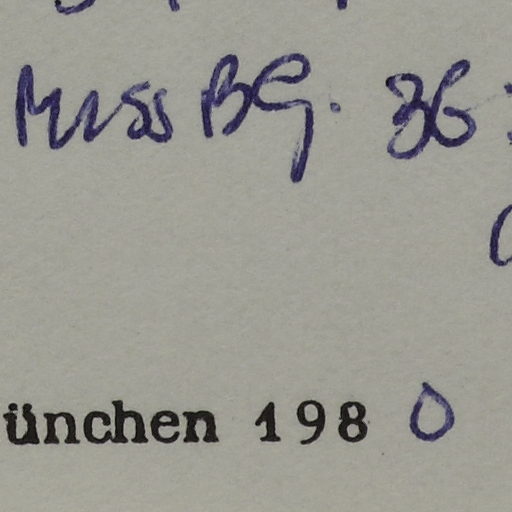 Muss BG. 36:
ünchen 198 0